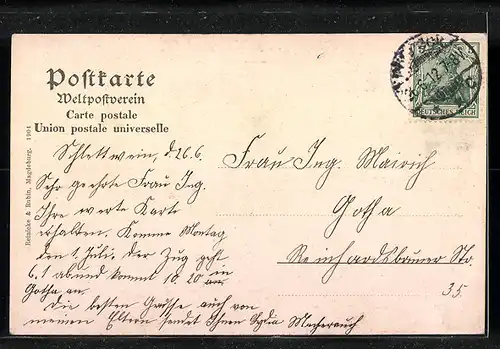 Postkarte
Weltpostverein
Carte postale
Union postale universelle
Reinicke & Rubin, Magdeburg. 1904
7-8N
DEUTSCHES REICH
Schlettwein, d. 26.6.
Sehr geehrte Frau Ing.
Ihre werte Karte
erhalten. Komme Montag
den 1. Juli. Der Zug geht
6.1 abend kommt 10.20 in
Gotha an.
Die besten Grüsse auch von
meinen Eltern sendet Ihnen Lydia
Frau Ing. Mairich
Gotha
Reinhardtsbrunner Str
35.